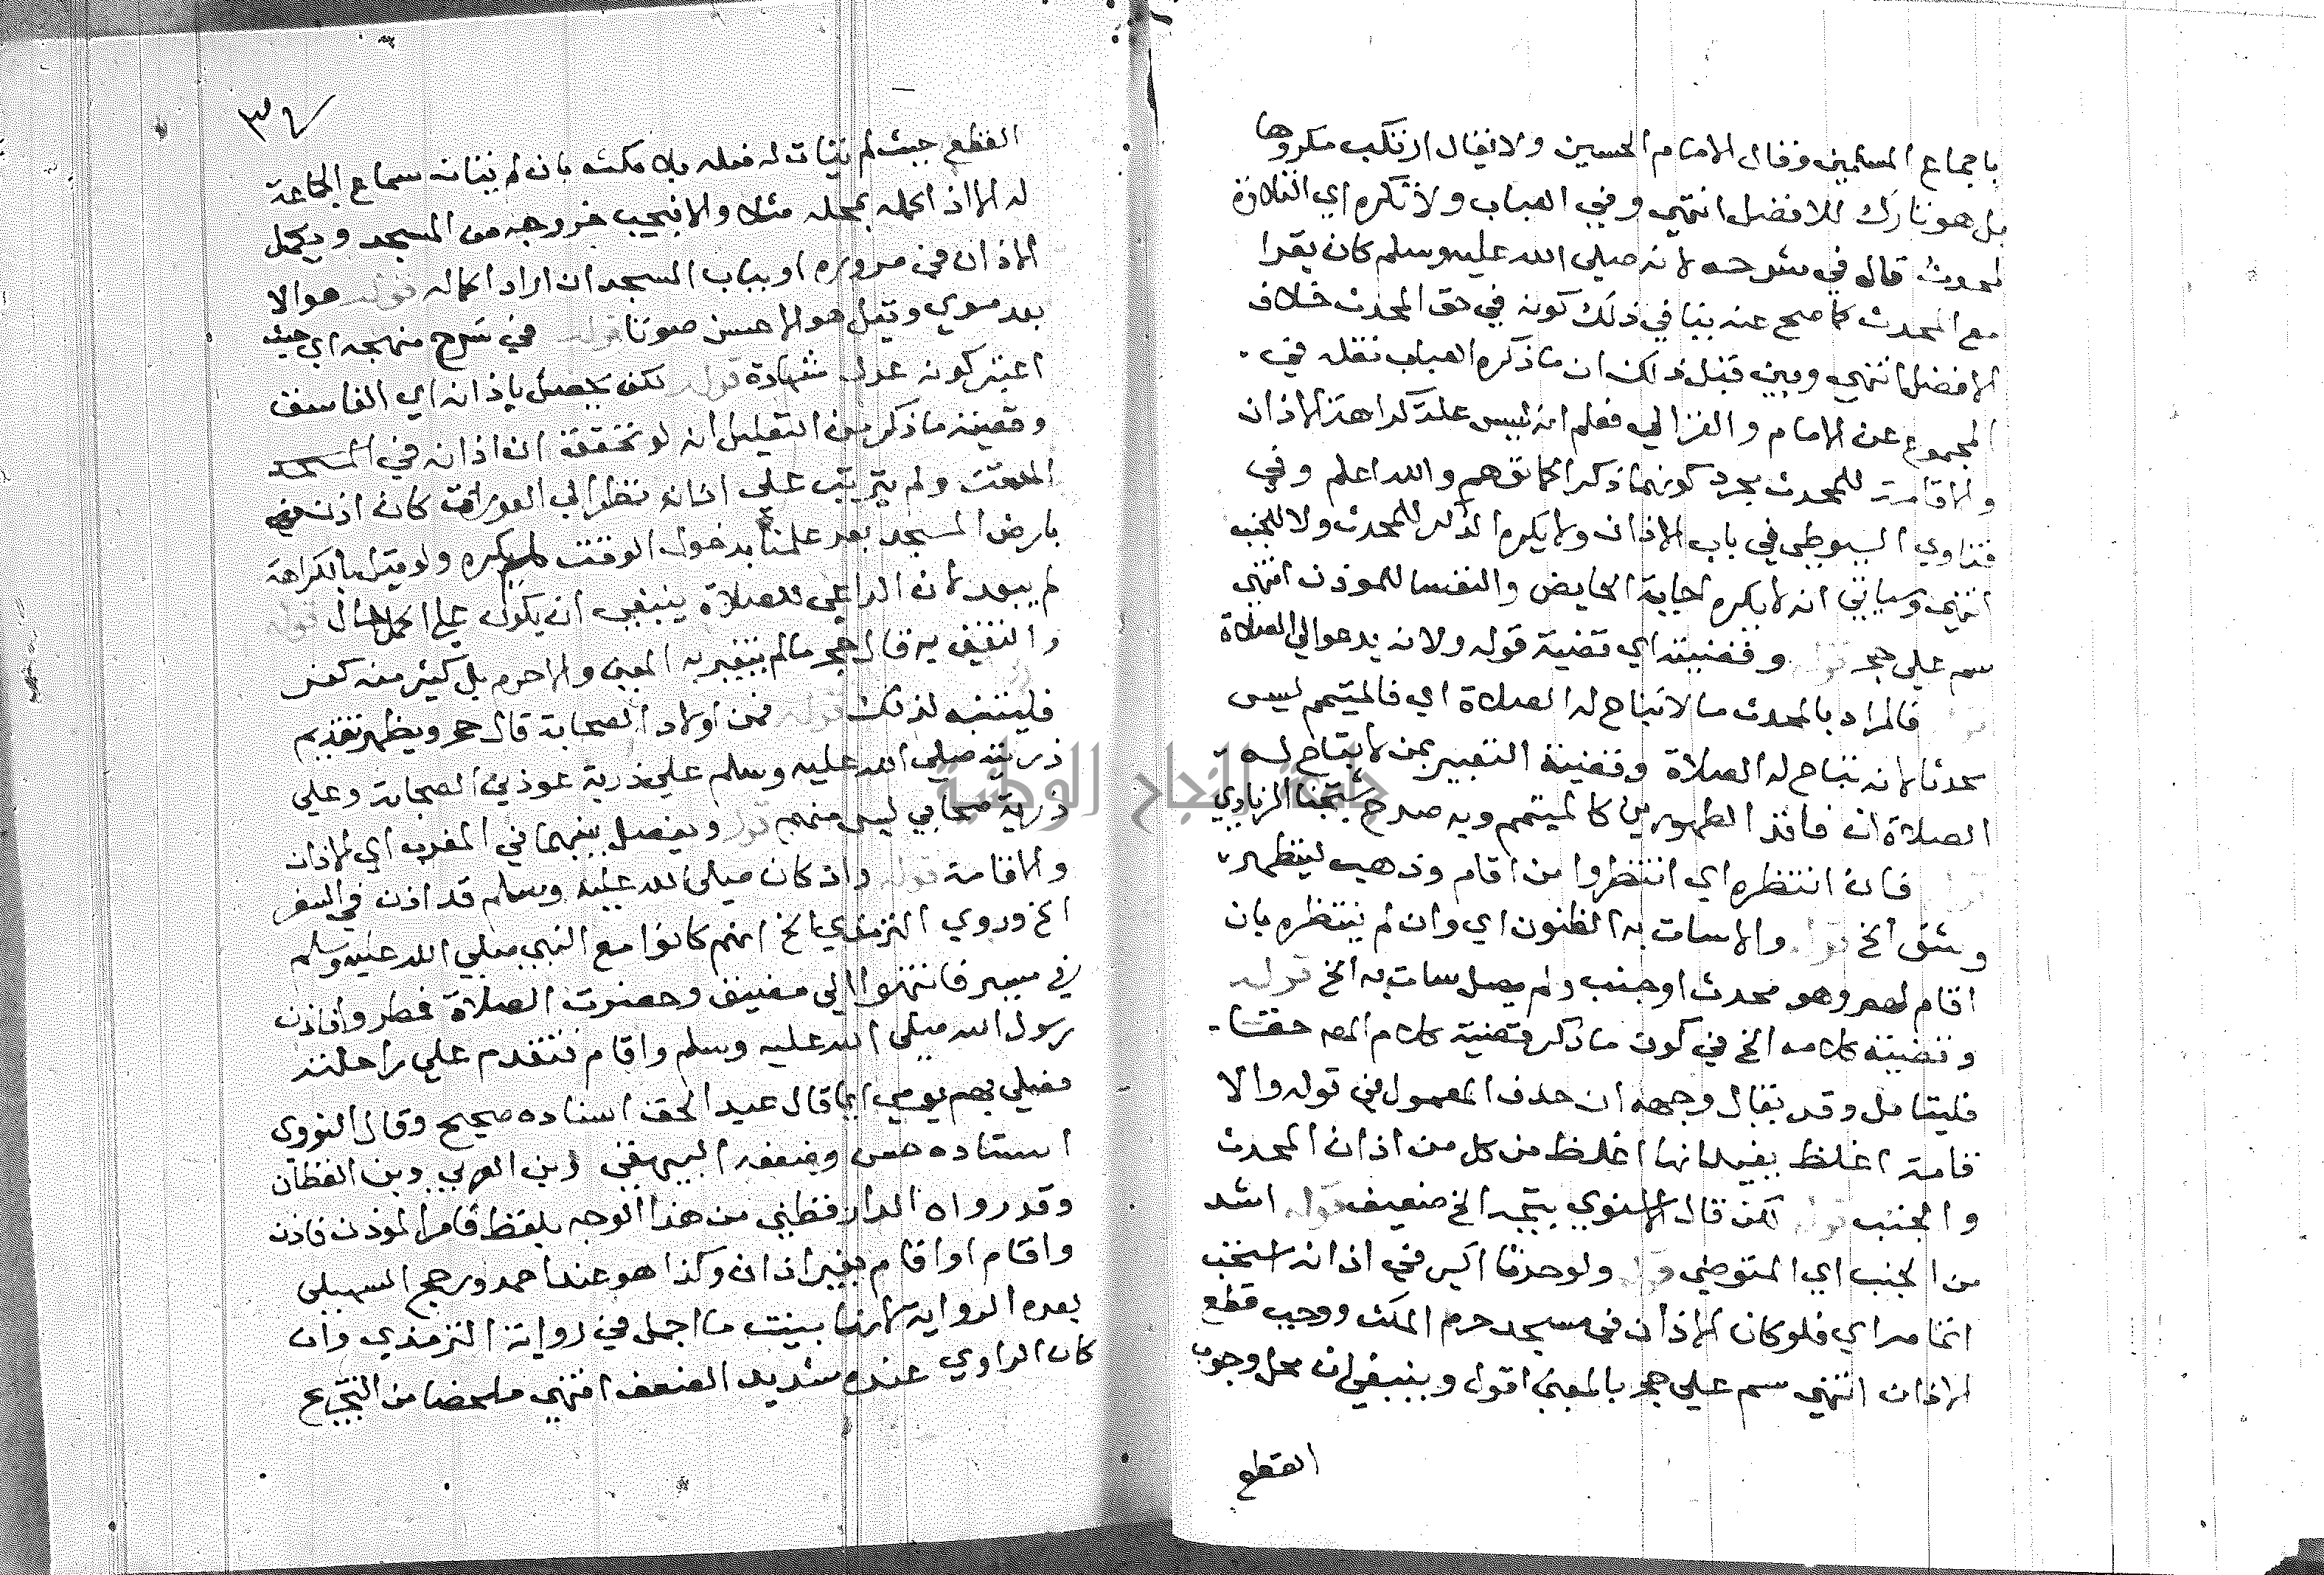 باجماع المسلمين وقال الامام الحسين ولا يقال ارتكب مكروها
بل هو تارك للافضل انتهي وفي العباب ولا تكره اي التلاوة
لمحدث قال في شرحه لانه صلي الله عليه وسلم كان يقرا
مع الحدث كما صح عنه ينافي ذلك كونه في حق المحدث خلاف
الافضل انتهي وبين قبل ذلك ان ما ذكره العباب نقله في
المجموع عن الامام و الغزالي فعلم انه ليس علة كراهة الاذان
والاقامة للمحدث مجرد كونهما ذكرا كما توهم والله اعلم وفي
فتاوي السيوطي في باب الاذان ولا يكره الذكر للمحدث ولا للجنب
انتهي وسياتي انه لا يكره اجابة الحايض والنفسا للموذن انتهي
سم علي حج قوله وقضيته اي قضية قوله ولانه يدعو الي الصلاة
فالمراد بالمحدث من لا تباح له الصلاة اي فالمتيمم ليس
محدثا لانه تباح له الصلاة وقضية التعبير بمن لا يباح له
الصلاة ان فاقد الطهورين كالمتيمم وبه صرح شيخنا الزيادي
فان انتظره اي انتظروا من اقام وذهب ليتطهر
وشق الخ قوله والا سات به الظنون اي وان لم ينتظره بان
اقام لهم وهو محدث او جنب ولم يصل سات به الخ قوله
وقضيته كلامه الخ في كون ما ذكر قضية كلام المص خفتا
فليتامل وقد يقال وجهه ان حذف المعمول في قوله والا
قامة اغلظ يفيد انها اغلظ من كل من اذان المحدث
والجنب قوله لكن قال الاسنوي يتجه الخ ضعيف قوله اشد
من الجنب اي المتوضي قوله ولو حدثا اكبر في اذانه استحب
اتمامه اي فلو كان الاذان في مسجد حرم المكث ووجب قطع
الاذان انتهي سم علي حج بالمعني اقول وينبغي ان محل وجوب
القطع
٣٤
القطع حيث لم يتات له فعله بلا مكث بان لم يتات سماع الجماعة
له الا اذا كمله بمحله مثلا والا فيجب خروجه من المسجد ويكمل
الاذان في مروره او بباب المسجد ان اراد اكماله قوله هو الا
بعد صوي وقيل هو الاحسن صوتا قوله في شرح منهجه اي حيث
اعتبر كونه عدل شهادة قوله لكن يحصل باذانه اي الفاسق
وقضية ما ذكر من التعليل انه لو تحققة ان اذانه في
الوقت ولم يترتب علي اذانه نظر الي العورات كان اذن
بارض المسجد بعد علمنا بدخول الوقت لم يكره ولو قيل بالكراهة
لم يبعد لان الداعي للصلاة ينبغي ان يكون علي اكمل حال قوله
والتغني به قال حج ما لم يتغير به المعني والا حرم بل كثير منه كفر
فليتنبه لذلك قوله فمن اولاد الصحابة قال حج ويظهر تقديم
ذريته صلي الله عليه وسلم علي ذرية موذني الصحابة وعلي
ذرية صحابي ليس منهم قوله ويفصل بينهما في المغرب اي الاذان
والاقامة قوله وان كان صلي الله عليه وسلم قد اذن في السفر
الخ وروي الترمذي الخ انهم كانوا مع النبي صلي الله عليه وسلم
في مسير فانتهوا الي مضيق وحضرت الصلاة فمطروا فاذن
رسول الله صلي الله عليه وسلم واقام فتقدم علي راحلته
فصلي بهم يومي ايما قال عبد الحق اسناده صحيح وقال النووي
اسناده حسن وضعفه البيهقي وابن العربي وبن القطان
وقد رواه الدارقطني من هذا الوجه بلفظ فامر الموذن فاذن
واقام او اقام بغير اذان وكذا هو عند احمد ورجح السهيلي
بهذه الرواية لانها بينت ما اجمل في رواية الترمذي وان
كان الراوي عنده شديد الضعف انتهي ملخصا من التخريج
جامعة النجاح الوطنية